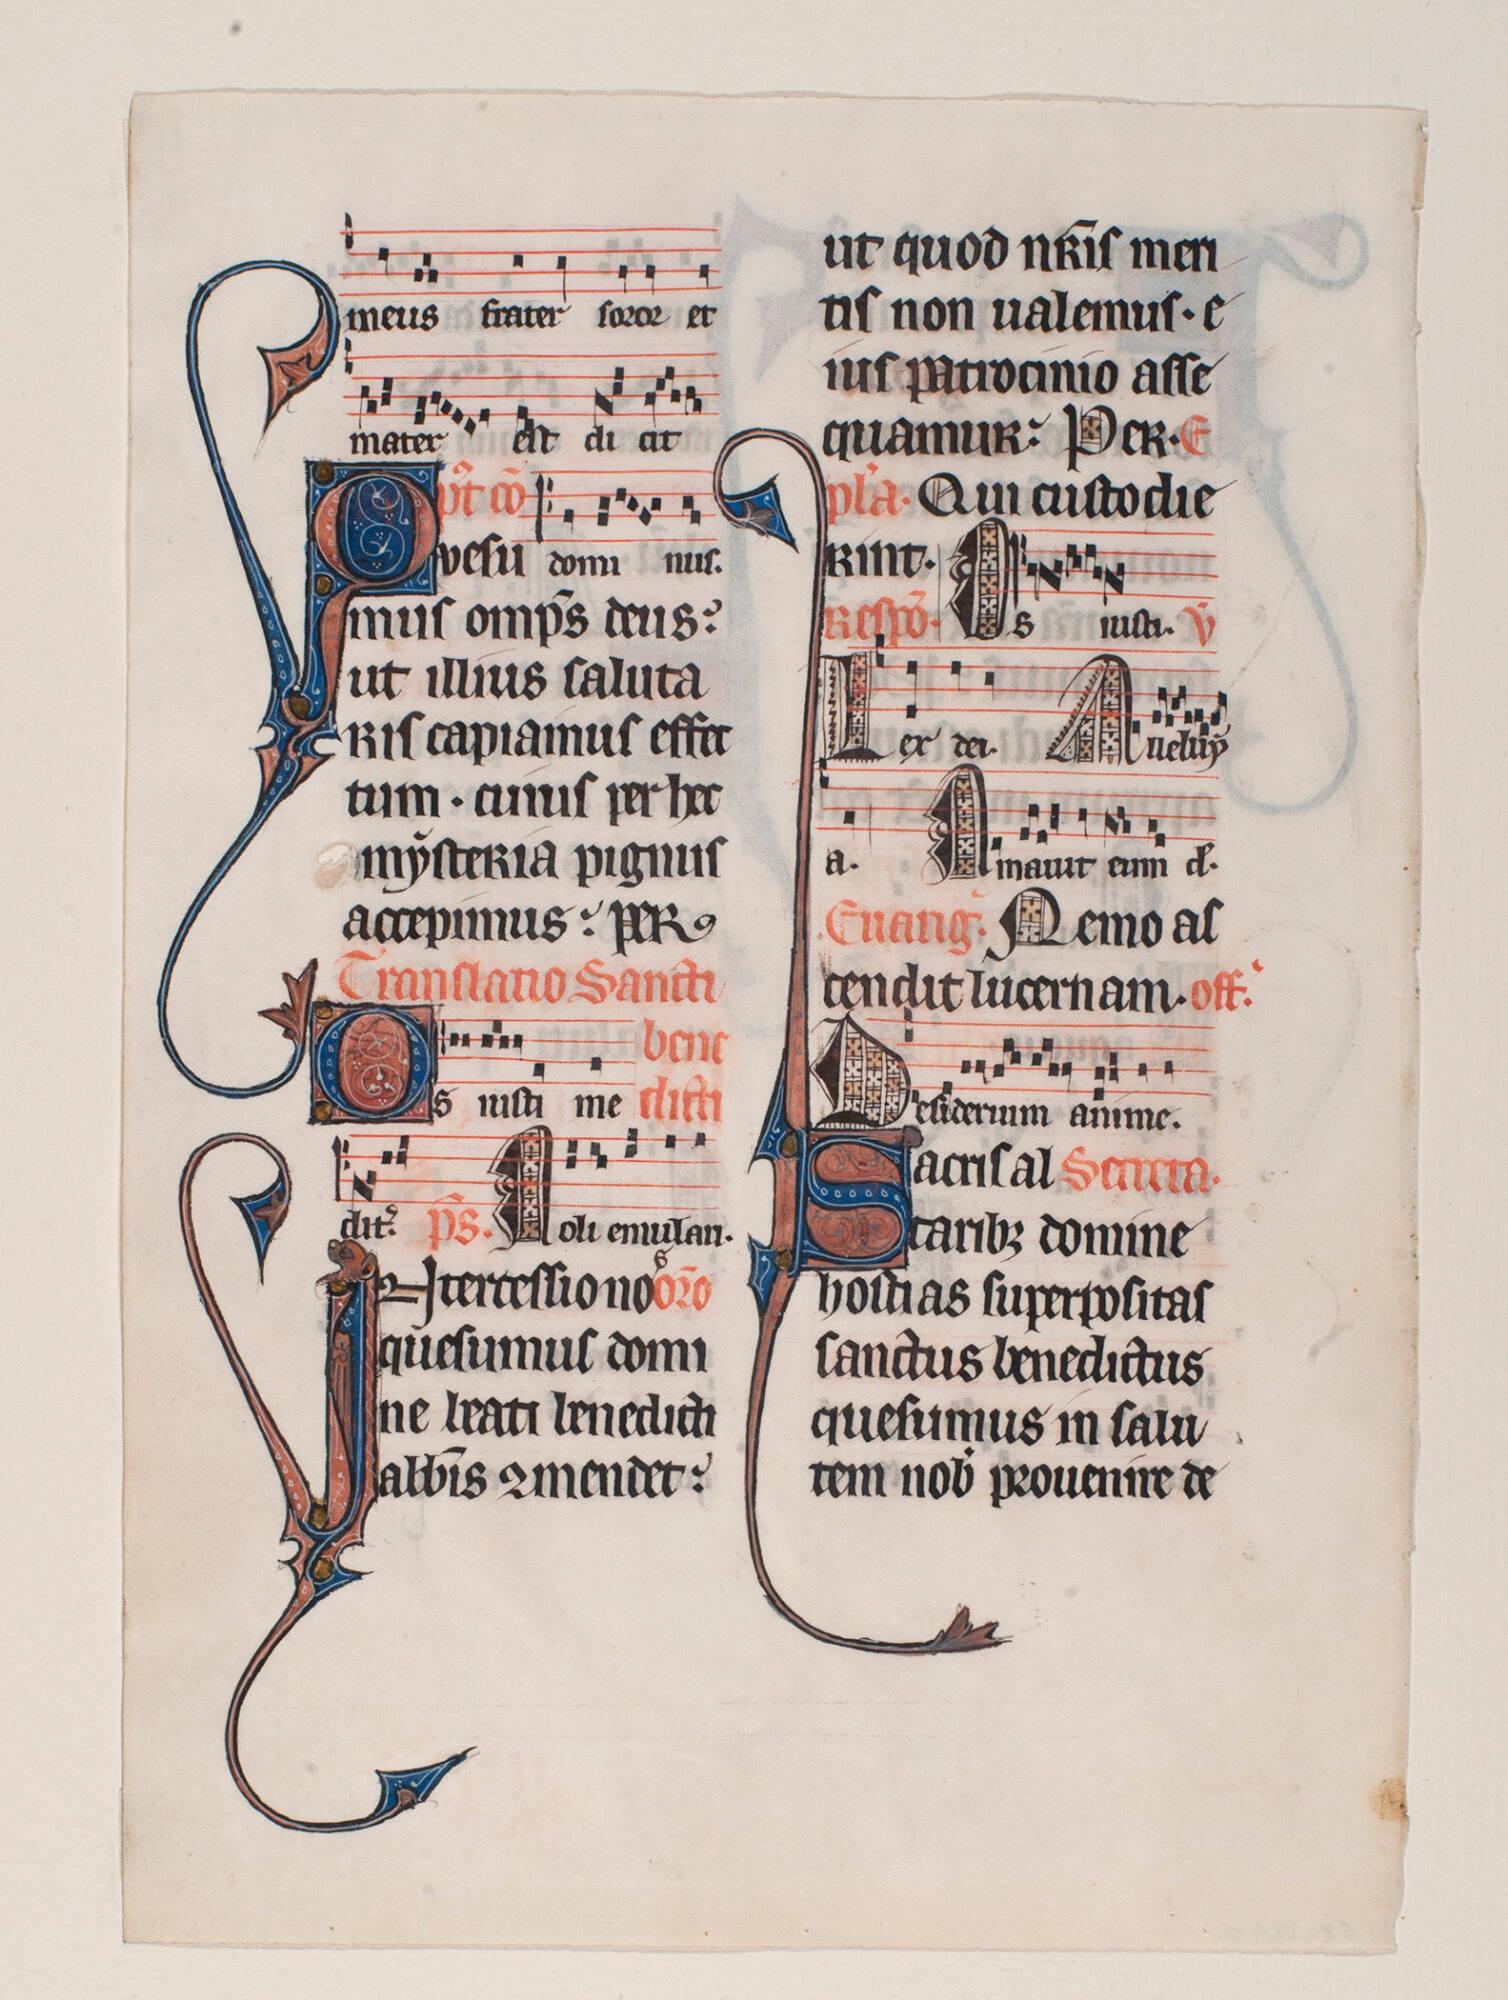 meus frater soror et
mater est di cit
pꝰt cō
P vesu domi nus.
mus omp̄s deus:
ut illius saluta
ris capiamus effec
tum. cuius per hec
mysteria pignus
accepimus: per
Translatio Sancti
bene
Os iusti me dicti
dit: p̄s. Noli emulari.
Intercessio noˢ orō
quesumus domi
ne beati benedicti
abb̄is ꝯmendet:
ut quod nr̄is meri
tis non ualemus. e
ius patrocinio asse
quamur: Per. E
pl'a. Qui custodie
rint. Os iusti. V̄
Respō.
Lex dei. Alleluy
a. Amauit eum d.
Euang. Nemo as
cendit lucernam. off.
Desiderium anime.
Sacris al Secreta.
taribꝫ domine
hostias superpositas
sanctus benedictus
quesumus in salu
tem nob' prouenire de